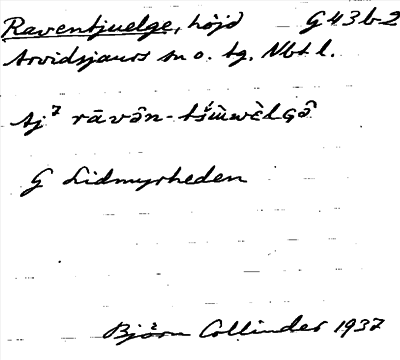 Raventjuelge, höjd G43b-2
Arvidsjaurs sn o. tg. Nbt l.
Aj⁷
G Lidmyrheden
Björn Collinder 1937